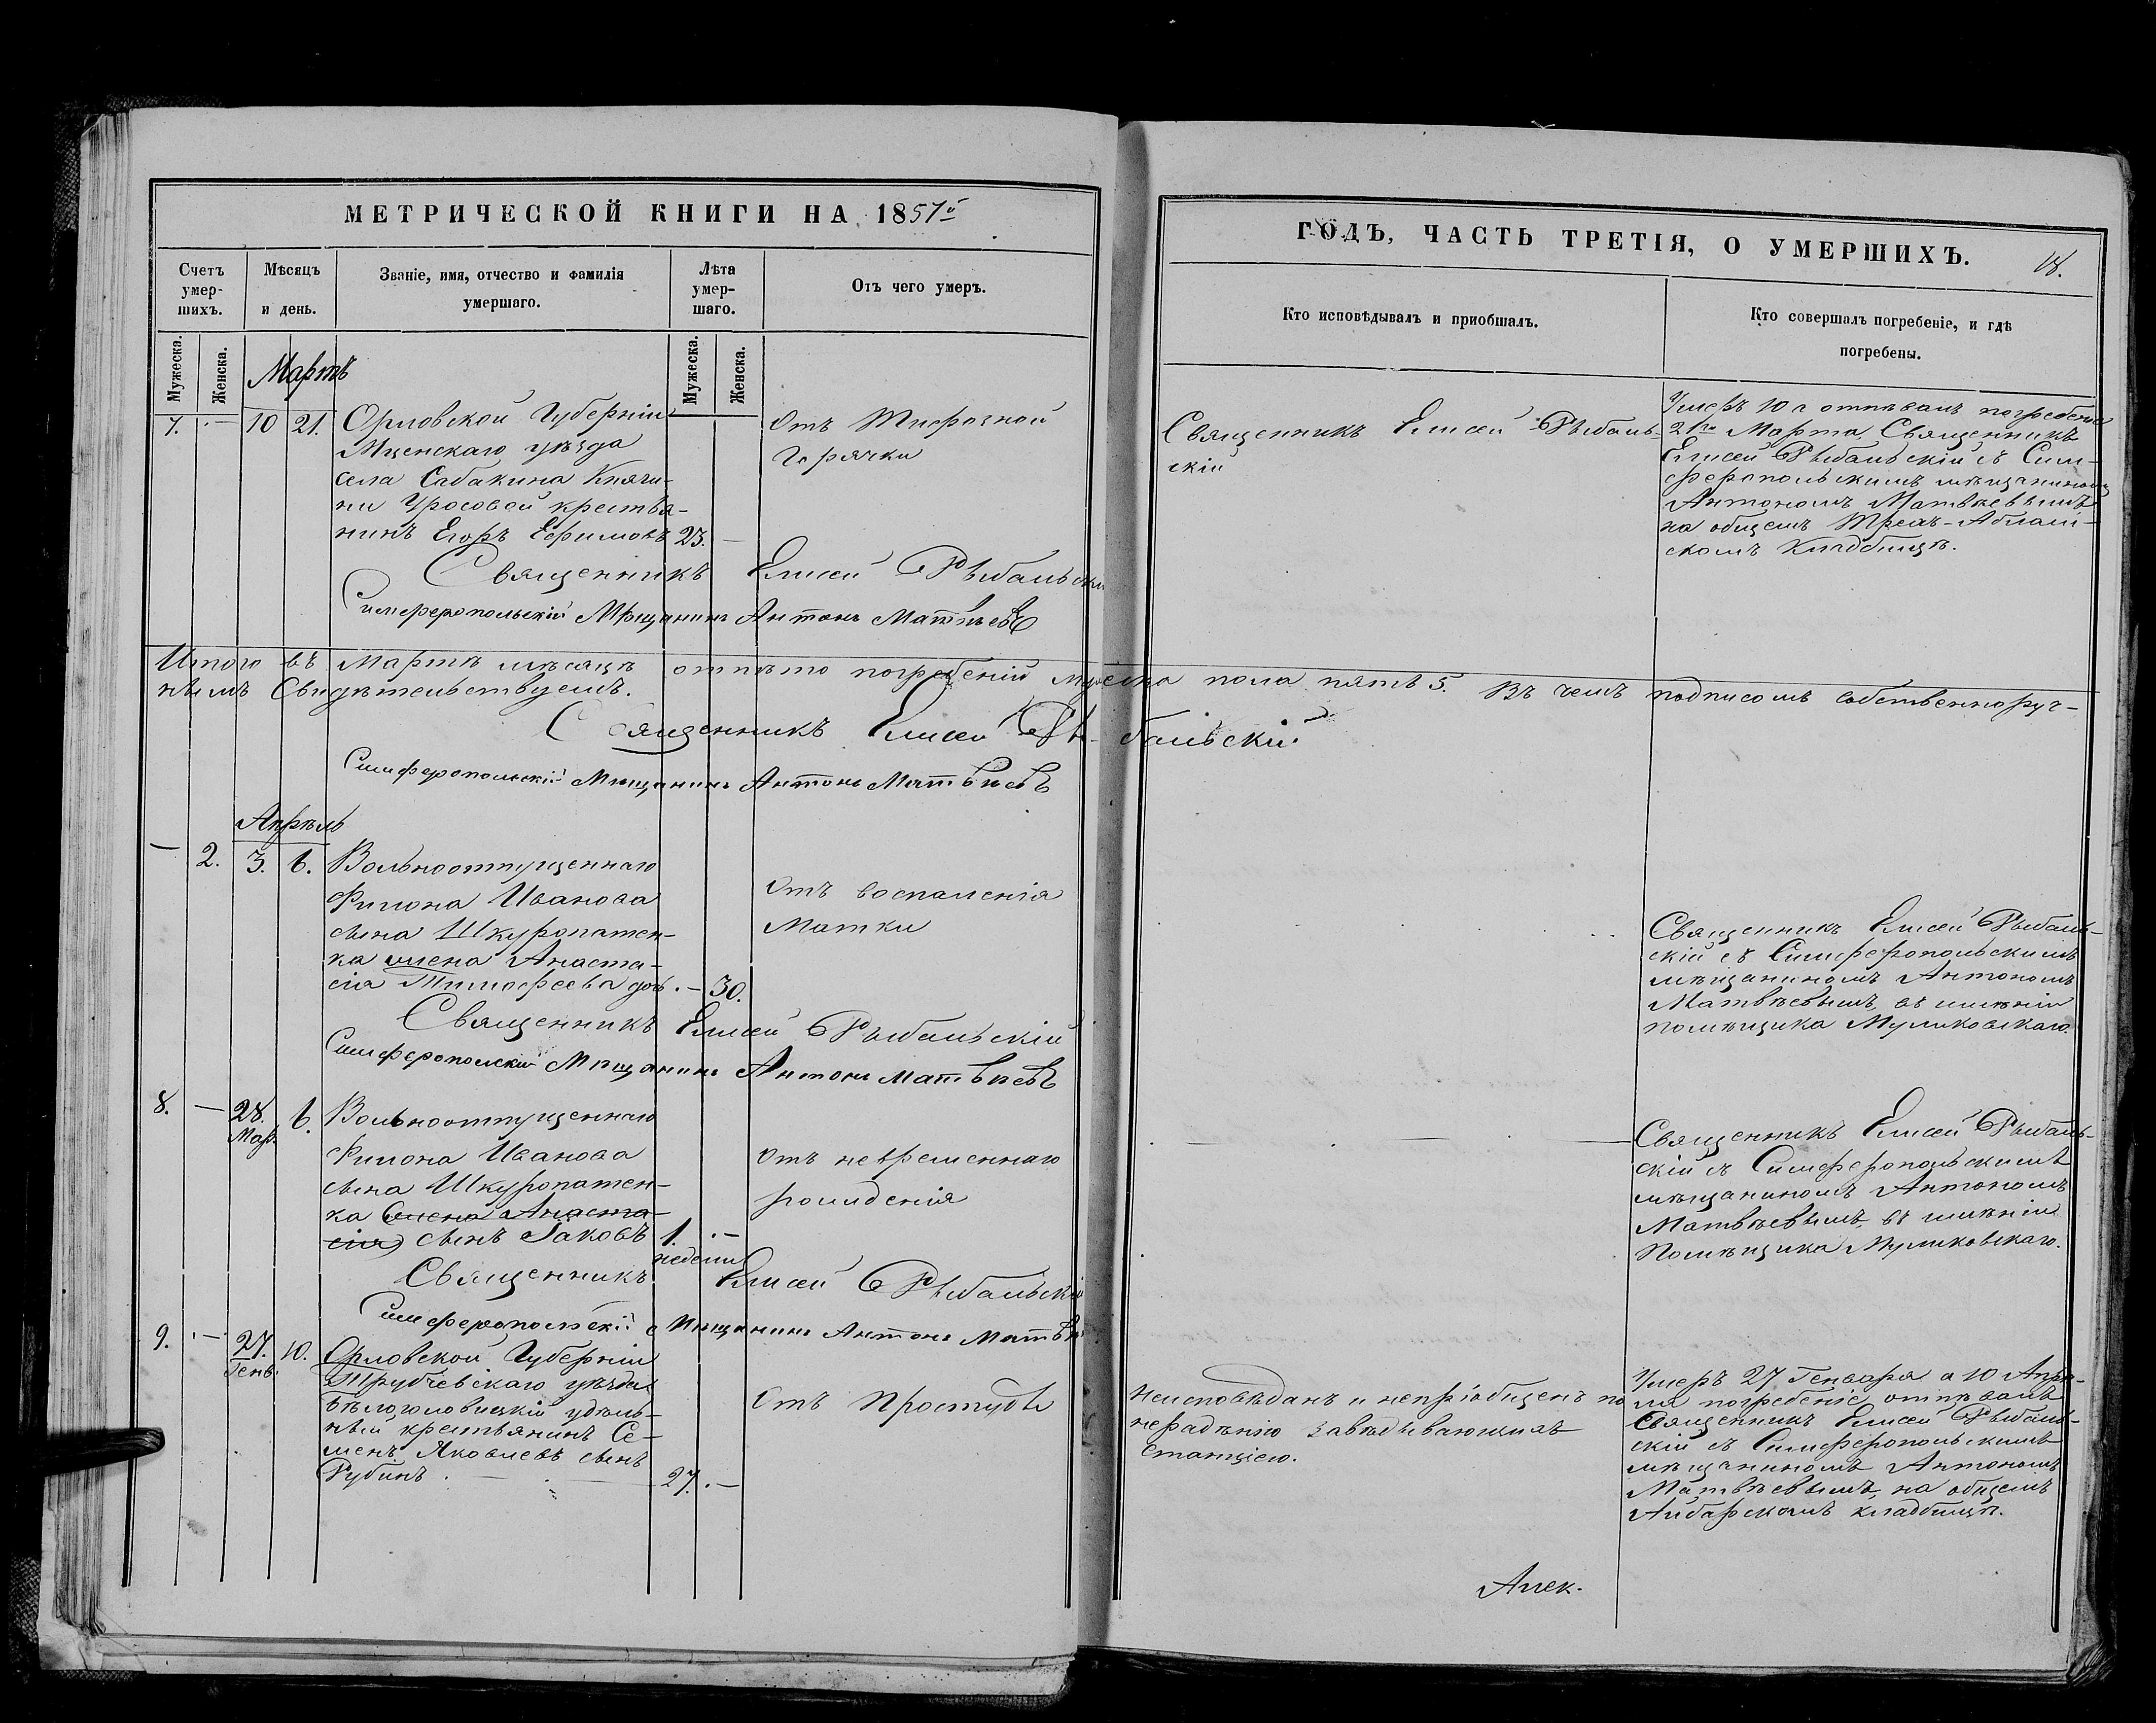 МЕТРИЧЕСКОЙ КНИГИ НА 1857й
ГОДЪ, ЧАСТЬ ТРЕТІЯ, О УМЕРШИХЪ.
18.
Счетъ умер-
шихъ.
Мѣсяцъ
и день.
Званіе, имя, отчество и фамилія
умершаго.
Лѣта
умер-
шаго.
Отъ чего умеръ.
Кто исповѣдывалъ и приобшалъ.
Кто совершалъ погребеніе, и гдѣ
погребены.
Мужеска.
Женска.
Мужеска.
Женска.
Мартъ
7. — 10 21.
Орловской Губерніи
Мценскаго уѣзда
села Сабакина Княги-
ни Уросовой крестья-
нинъ Егоръ Ефимовъ 23. —
Отъ Тифозной
Горячки
Священникъ Елисей Рыбаль-
скій
Умеръ 10 а отпѣвалъ погребеніе
21го Марта, Священникъ
Елисей Рыбальскій съ Сим-
феропольскимъ мѣщаниномъ
Антономъ Матвѣевымъ
на общемъ Трехъ-Аблам-
скомъ кладбищѣ.
Священникъ Елисей Рыбальскій
Симферопольскій Мѣщанинъ Антонъ Матвѣевъ
Итого въ Мартѣ мѣсяцѣ отпѣто погребеній мужеска пола пять 5. Въ чемъ подписомъ собственноруч-
нымъ Свидѣтельствуемъ.
Священникъ Елисей Рыбальскій
Симферопольскій Мѣщанинъ Антонъ Матвѣевъ
Апрѣль
— 2. 3. 6.
Вольноотпущеннаго
Филона Иванова
сына Шкуропатен-
ка жена Анаста-
сія Тимофеева дочь. — 30.
Отъ воспаленія
Матки
Священникъ Елисей Рыбаль-
скій съ Симферопольскимъ
мѣщаниномъ Антономъ
Матвѣевымъ, въ имѣніи
помѣщика Муликовскаго.
Священникъ Елисей Рыбальскій
Симферопольскій Мѣщанинъ Антонъ Матвѣевъ
8. — 28. Мар. 6.
Вольноотпущеннаго
Филона Иванова
сына Шкуропатен-
ка (жена Анаста-
сія) сынъ Іаковъ 1. —
недели
Отъ невременнаго
рожденія
Священникъ Елисей Рыбаль-
скій съ Симферопольскимъ
мѣщаниномъ Антономъ
Матвѣевымъ, въ имѣніи
Помѣщика Муликовскаго.
Священникъ Елисей Рыбальскій
Симферопольскій Мѣщанинъ Антонъ Матвѣ
9. — 27. Генв. 10.
Орловской Губерніи
Трубчевскаго уѣзда
Бѣлоголовицкій удѣль-
ный крестьянинъ Се-
менъ Яковлевъ сынъ
Рубинъ 27. —
Отъ Простуды
Неисповѣданъ и непріобщенъ по
нерадѣнію завѣдывающихъ
станціею.
Умеръ 27 Генваря а 10 Апрѣ-
ля погребеніе отпѣвалъ
Священникъ Елисей Рыбаль-
скій съ Симферопольскимъ
мѣщаниномъ Антономъ
Матвѣевымъ, на общемъ
Айбарскомъ кладбищѣ.
Алек-